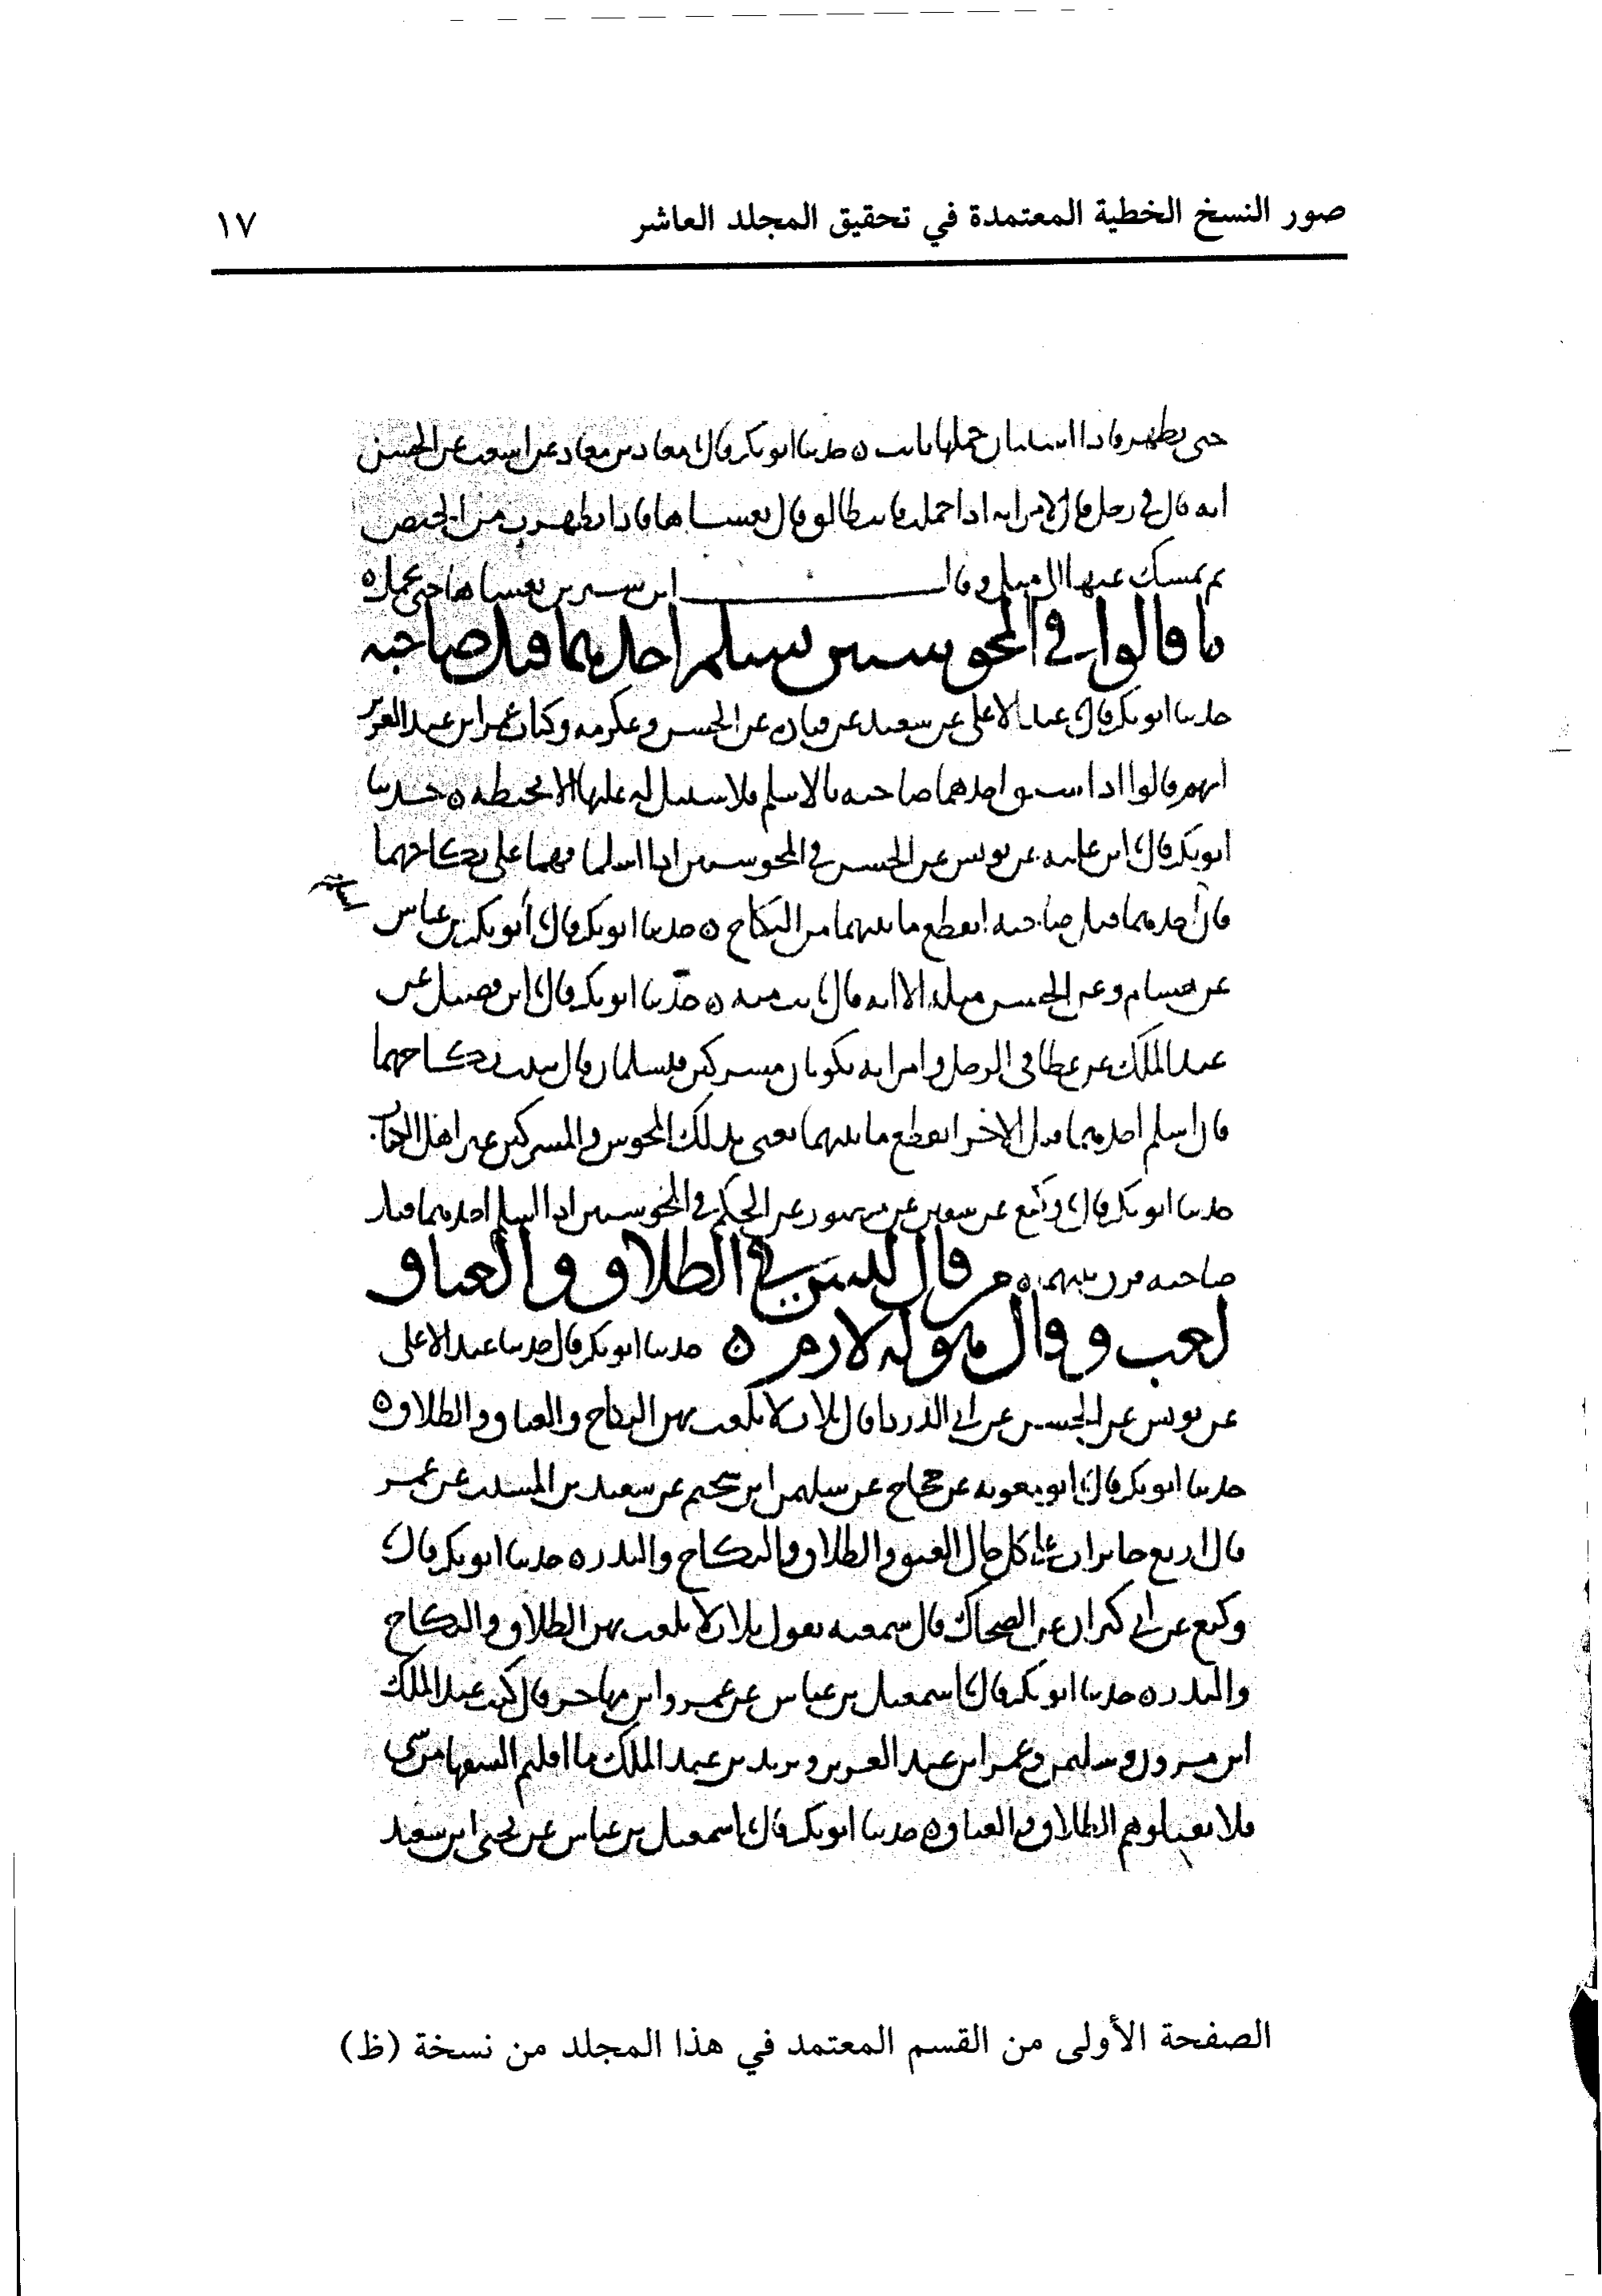 صور النسخ الخطية المعتمدة في تحقيق المجلد العاشر
١٧
حتى يطهر فاذا استبان حملها بانت ه حدثنا ابو بكر قال معاذ بن معاذ عن اشعث عن الحسن
انه قال في رجل قال لامراته اذا حملت فانت طالق قال يغشاها فاذا تطهرت من الحيض
ثم يمسك عنها الى مثل وقال ابن سيرين يغشاها حتى تحمل ه
ما قالوا في المجوسيين يسلم احدهما قبل صاحبه
حدثنا ابو بكر قال عبد الاعلى عن سعيد عن قتادة عن الحسن وعكرمه وكتاب عمر ابن عبد العزيز
انهم قالوا اذا سبق احدهما صاحبه بالاسلم فلا سبيل له عليها الا بخطبه ه حدثنا
ابو بكر قال ابن عليه عن يونس عن الحسن في المجوسيين اذا اسلما فهما على نكاحهما
فان احدهما قبل صاحبه انقطع ما بينهما من النكاح ه حدثنا ابو بكر قال أبو بكر بن عياش
عن هشام وعن الحسن مثله الا انه قال بانت منه ه حدثنا ابو بكر قال ابن فضيل عن
عبد الملك عن عطا في الرجل وامراته يكونان مشركين فيسلمان قال يثبت نكاحهما
فان اسلم احدهما قبل الاخر انقطع ما بينهما يعني بذلك المجوس والمشركين غير اهل الكتاب
حدثنا ابو بكر قال وكيع عن سفين عن منصور عن الحكم في المجوسيين اذا اسلم احدهما قبل
صاحبه فرق بينهما ه من قال ليس في الطلاق والعتاق
لعب وقال هو له لازم ه حدثنا ابو بكر قال حدثنا عبد الاعلى
عن يونس عن الحسن عن ابي الدردا قال ثلاث لا يلعب بهن النكاح والعتاق والطلاق ه
حدثنا ابو بكر قال ابو معويه عن حجاج عن سليمن ابن سحيم عن سعيد بن المسيب عن عمر
قال اربع جايزات على كل حال العتق والطلاق والنكاح والنذر ه حدثنا ابو بكر قال
وكيع عن ابي كبران عن الضحاك قال سمعته يقول ثلاث لا يلعب بهن الطلاق والنكاح
والنذر ه حدثنا ابو بكر قال اسمعيل بن عياش عن عمرو ابن مهاجر قال كتب عبد الملك
ابن مرون وسليمن وعمر ابن عبد العزيز ويزيد بن عبد الملك ما اقلتم السفها من شي
فلا تقيلوهم الطلاق والعتاق ه حدثنا ابو بكر قال اسمعيل بن عياش عن يحيى ابن سعيد
الصفحة الأولى من القسم المعتمد في هذا المجلد من نسخة (ظ)